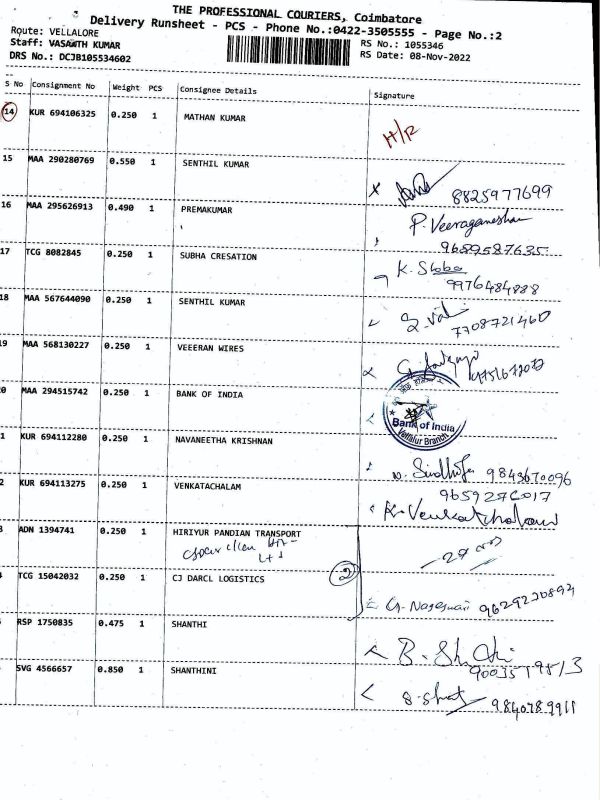 THE PROFESSIONAL COURIERS, Coimbatore
Delivery Runsheet - PCS - Phone No.:0422-3505555 - Page No.:2
Route: VELLALORE
Staff: VASANTH KUMAR RS No.: 1055346
DRS No.: DCJB105534602 RS Date: 08-Nov-2022
S No Consignment No Weight PCS Consignee Details Signature
14 KUR 694106325 0.250 1 MATHAN KUMAR
H/R
15 MAA 290280769 0.550 1 SENTHIL KUMAR
8825977699
16 MAA 295626913 0.490 1 PREMAKUMAR
P. Veeraganeshan
9689587635
17 TCG 8082845 0.250 1 SUBHA CRESATION
K. Shoba
9976484888
18 MAA 567644090 0.250 1 SENTHIL KUMAR
7708721460
19 MAA 568130227 0.250 1 VEEERAN WIRES
0 MAA 294515742 0.250 1 BANK OF INDIA
Bank of India
Vellalur Branch
1 KUR 694112280 0.250 1 NAVANEETHA KRISHNAN
9843670096
2 KUR 694113275 0.250 1 VENKATACHALAM
9659276017
K. Venkatachalam
3 ADN 1394741 0.250 1 HIRIYUR PANDIAN TRANSPORT
4 TCG 15042032 0.250 1 CJ DARCL LOGISTICS
2
G. Nageswari 9629220892
RSP 1750835 0.475 1 SHANTHI
9003519513
SVG 4566657 0.850 1 SHANTHINI
9840789911